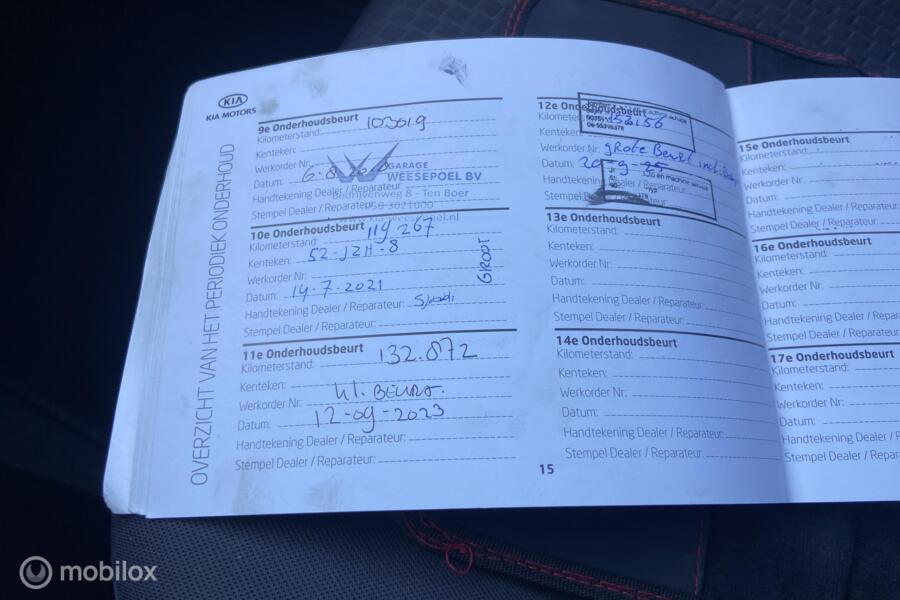 KIA
KIA MOTORS
OVERZICHT VAN HET PERIODIEK ONDERHOUD
9e Onderhoudsbeurt
Kilometerstand:
Kenteken:
Werkorder Nr:
Datum: 6-8
Handtekening Dealer / Reparateur:
Stempel Dealer / Reparateur:
GARAGE
WEESEPOEL BV
Bedrijvenweg 8 - Ten Boer
10e Onderhoudsbeurt
Kilometerstand: 119 267
Kenteken:
Werkorder Nr:
Datum: 14-7-2021
Handtekening Dealer / Reparateur:
Stempel Dealer / Reparateur:
GROOT
11e Onderhoudsbeurt
Kilometerstand: 132.872
Kenteken:
Werkorder Nr: kl. BEURT.
Datum: 12-09-2023
Handtekening Dealer / Reparateur:
Stempel Dealer / Reparateur:
12e Onderhoudsbeurt
Kenteken:
Werkorder Nr: grote Beurt incl.
Datum:
13e Onderhoudsbeurt
Kilometerstand:
Kenteken:
Werkorder Nr:
Datum:
Handtekening Dealer / Reparateur:
Stempel Dealer / Reparateur:
14e Onderhoudsbeurt
Kilometerstand:
Kenteken:
Werkorder Nr:
Datum:
Handtekening Dealer / Reparateur:
Stempel Dealer / Reparateur:
15
15e Onderhoudsbeurt
Kilometerstand:
Kenteken:
Werkorder Nr:
Datum:
Handtekening Dealer / Reparateur:
Stempel Dealer / Reparateur:
16e Onderhoudsbeurt
Kilometerstand:
Kenteken:
Werkorder Nr:
Datum:
Handtekening Dealer / Reparateur:
Stempel Dealer / Reparateur:
17e Onderhoudsbeurt
Kilometerstand:
Kenteken:
Werkorder Nr:
Datum:
Handtekening Dealer / R
Stempel Dealer / Repara
mobilox